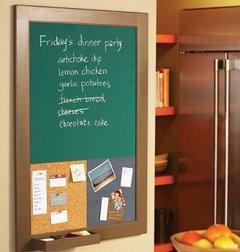 Friday's dinner party
artichoke dip
lemon chicken
garlic potatoes
french bread
cheeses
chocolate cake